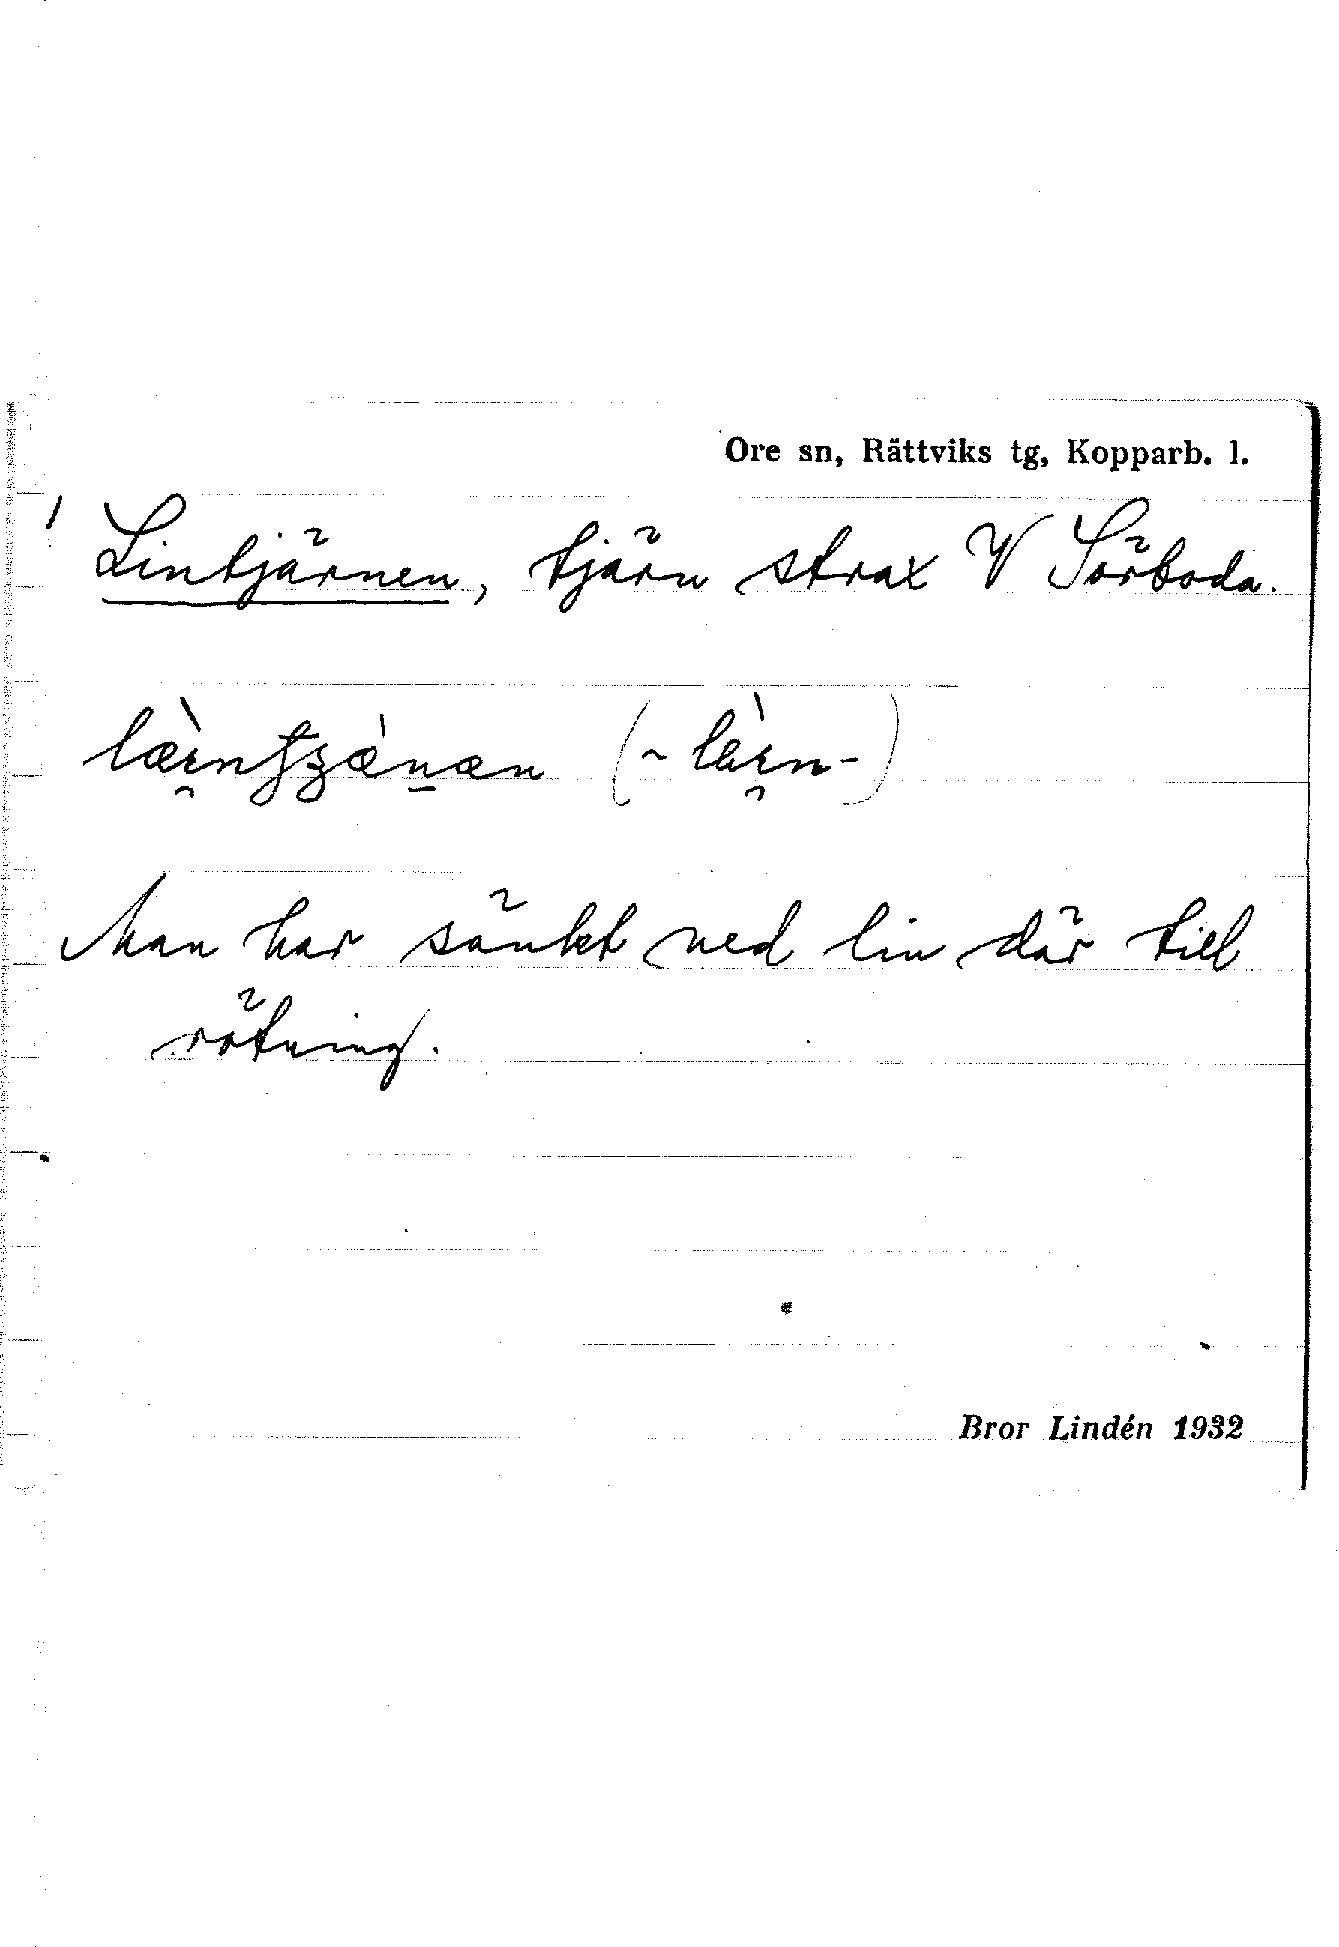 Ore sn, Rättviks tg, Kopparb. l.
Lintjärnen, tjärn strax V Sörboda.
Man har sänkt ned lin där till
rötning.
Bror Lindén 1932